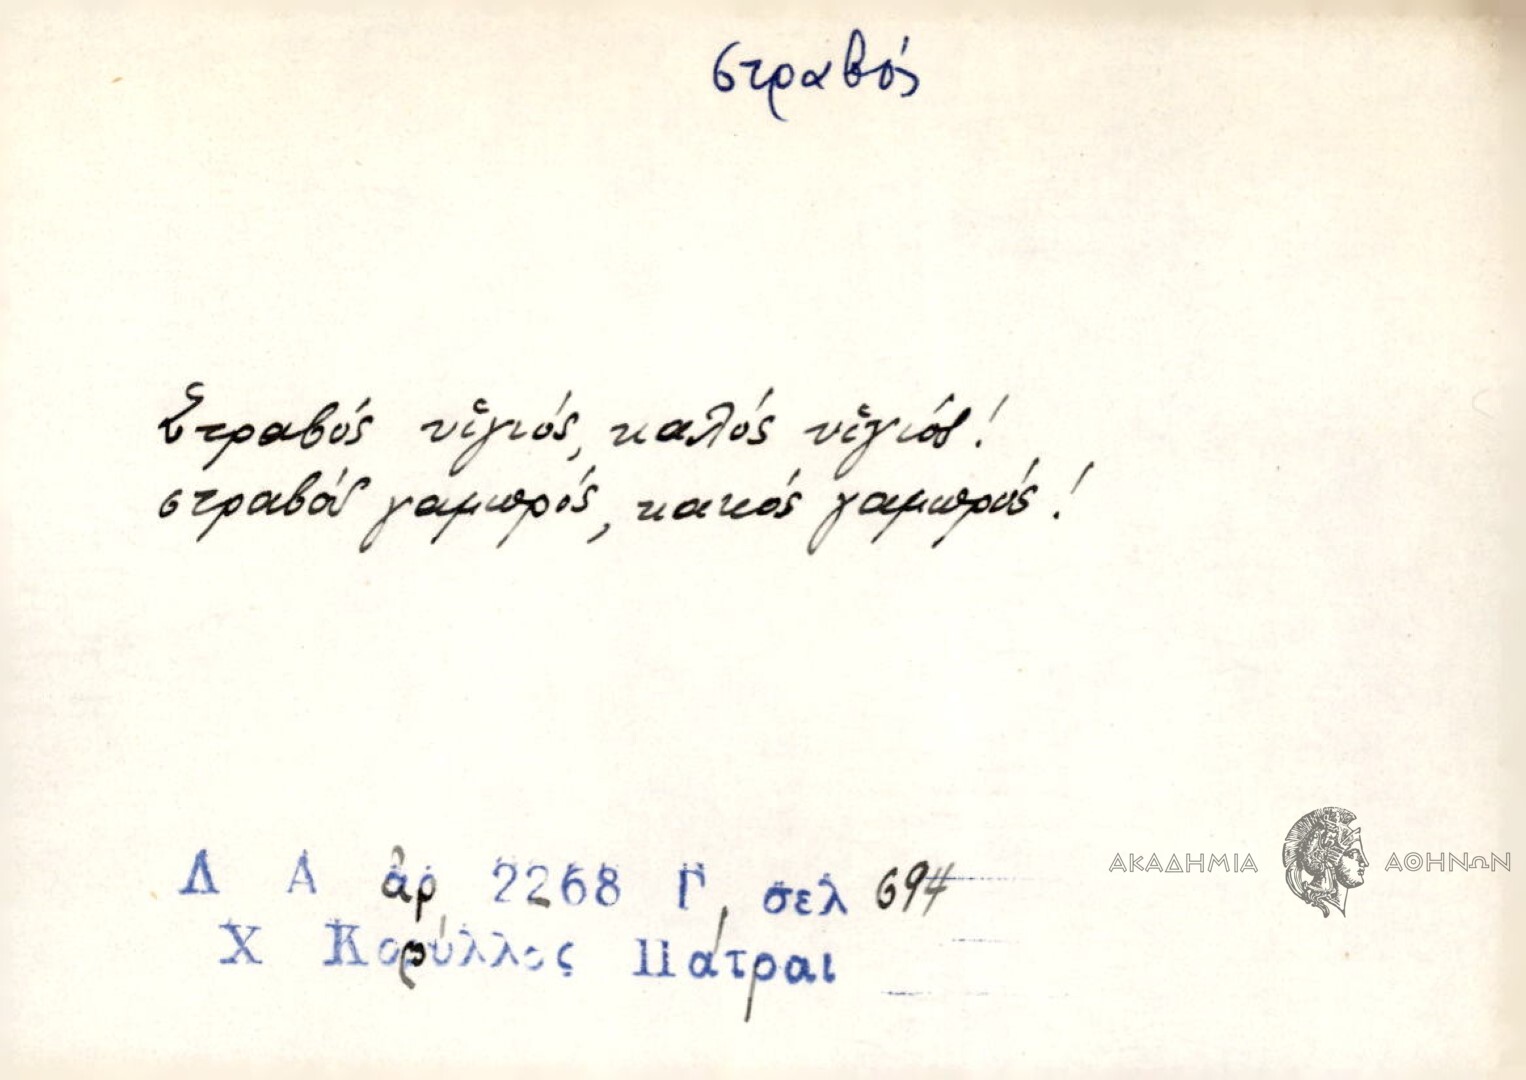 στραβός
Στραβός υἱγιός, καλός υἱγιός!
στραβός γαμπρός, κακός γαμπρός!
Λ Α ἀρ 2268 Γ, σελ 694
Χ Κορύλλος Πάτραι
ΑΚΑΔΗΜΙΑ ΑΘΗΝΩΝ